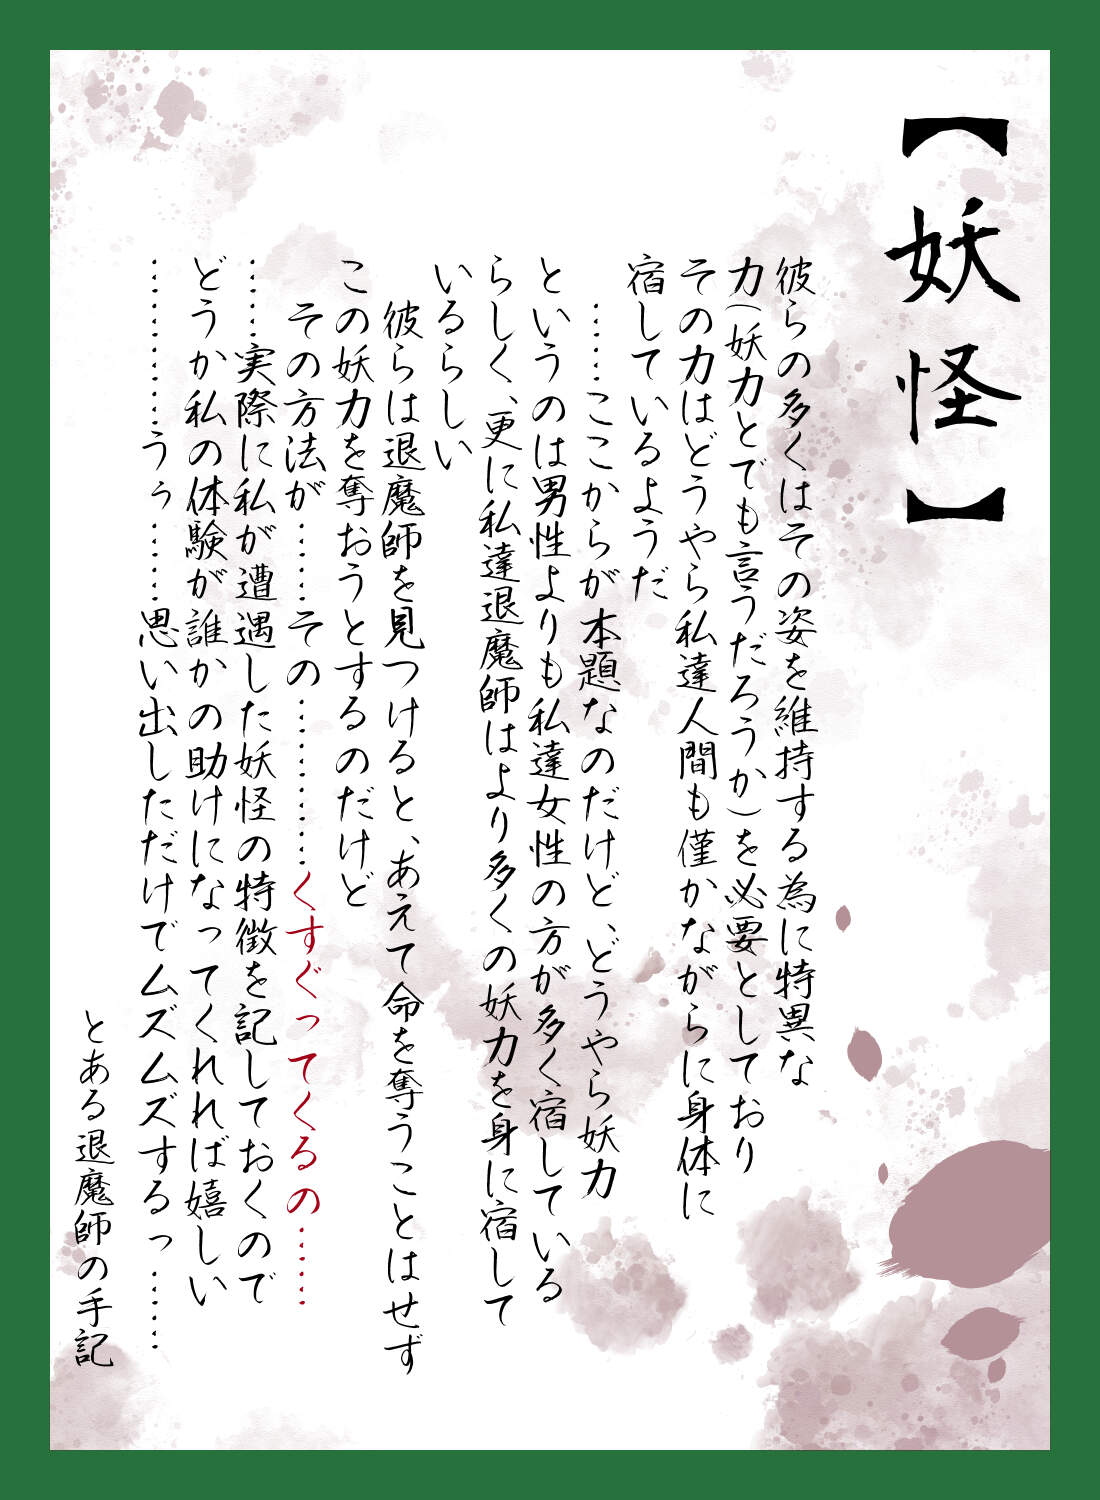 【妖怪】
彼らの多くはその姿を維持する為に特異な
力(妖力とでも言うだろうか)を必要としており
その力はどうやら私達人間も僅かながらに身体に
宿しているようだ
……ここからが本題なのだけど、どうやら妖力
というのは男性よりも私達女性の方が多く宿している
らしく、更に私達退魔師はより多くの妖力を身に宿して
いるらしい
彼らは退魔師を見つけると、あえて命を奪うことはせず
この妖力を奪おうとするのだけど
その方法が……その…………くすぐってくるの……
……実際に私が遭遇した妖怪の特徴を記しておくので
どうか私の体験が誰かの助けになってくれれば嬉しい
…………うぅ……思い出しただけでムズムズするっ……
とある退魔師の手記